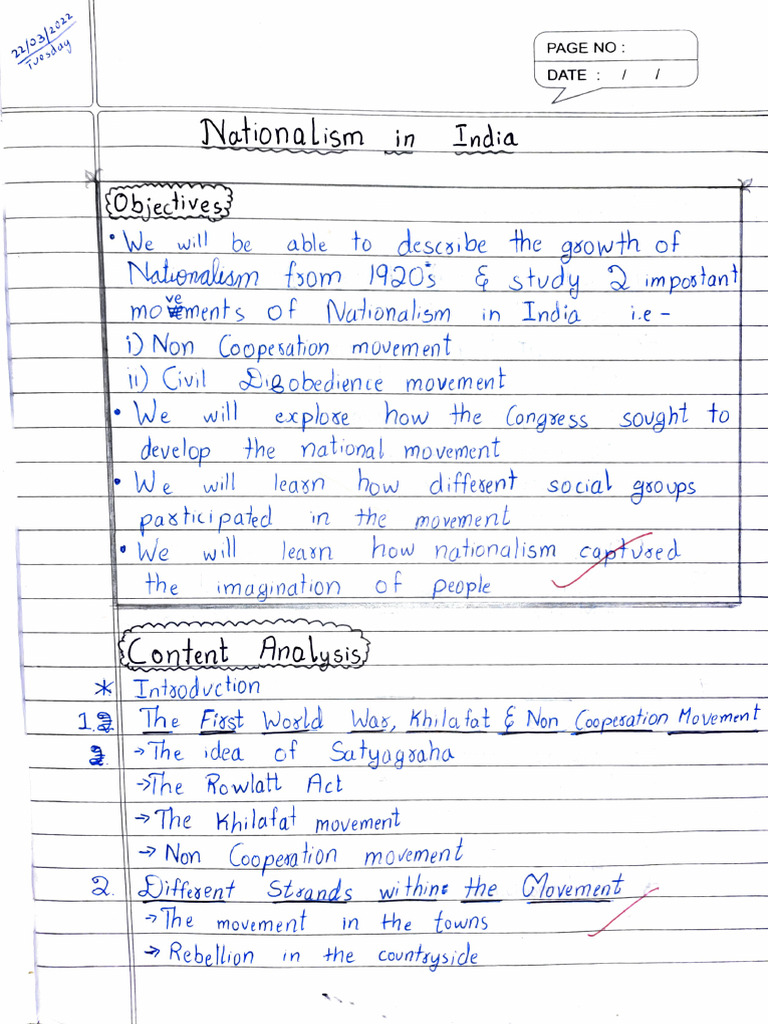 22/03/2022
Tuesday
PAGE NO :
DATE : / /
Nationalism in India
Objectives
• We will be able to describe the growth of
Nationalism from 1920's & study 2 important
movements of Nationalism in India i.e -
i) Non Cooperation movement
ii) Civil Disobedience movement
• We will explore how the Congress sought to
develop the national movement
• We will learn how different social groups
participated in the movement
• We will learn how nationalism captured
the imagination of people
Content Analysis
* Introduction
1. The First World War, Khilafat & Non Cooperation Movement
→ The idea of Satyagraha
→ The Rowlatt Act
→ The Khilafat movement
→ Non Cooperation movement
2. Different Strands within the Movement
→ The movement in the towns
→ Rebellion in the countryside